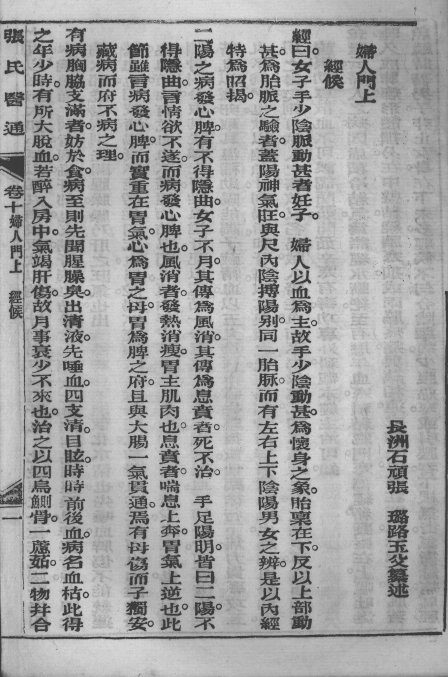 婦人門上
長洲石頑張 璐路玉父纂述
經候
經曰女子手少陰脈動甚者妊子。 婦人以血爲主。故手少陰動甚。爲懷身之象。胎稟在下。反以上部動
甚爲胎脈之驗者。蓋陽神氣旺。與尺內陰搏陽別。同一胎脈而有左右上下陰陽男女之辨。是以內經
特爲昭揭。
二陽之病發心脾。有不得隱曲。女子不月。其傳爲風消。其傳爲息賁者。死不治。 手足陽明皆曰二陽。不
得隱曲。言情欲不遂而病發心脾也。風消者。發熱消瘦。胃主肌肉也。息賁者。喘息上奔。胃氣上逆也。此
節雖言病發心脾。而實重在胃氣。心爲胃之母。胃爲脾之府。且與大腸一氣貫通。焉有母傷而子獨安。
藏病而府不病之理。
有病胸脇支滿者。妨於食。病至則先聞腥臊臭。出清液。先唾血。四支清。目眩。時時前後血。病名血枯。此得
之年少時。有所大脫血。若醉入房中。氣竭肝傷。故月事衰少不來也。治之以四烏鰂骨。一藘茹。二物幷合
張氏醫通
卷十婦人門上 經候
一